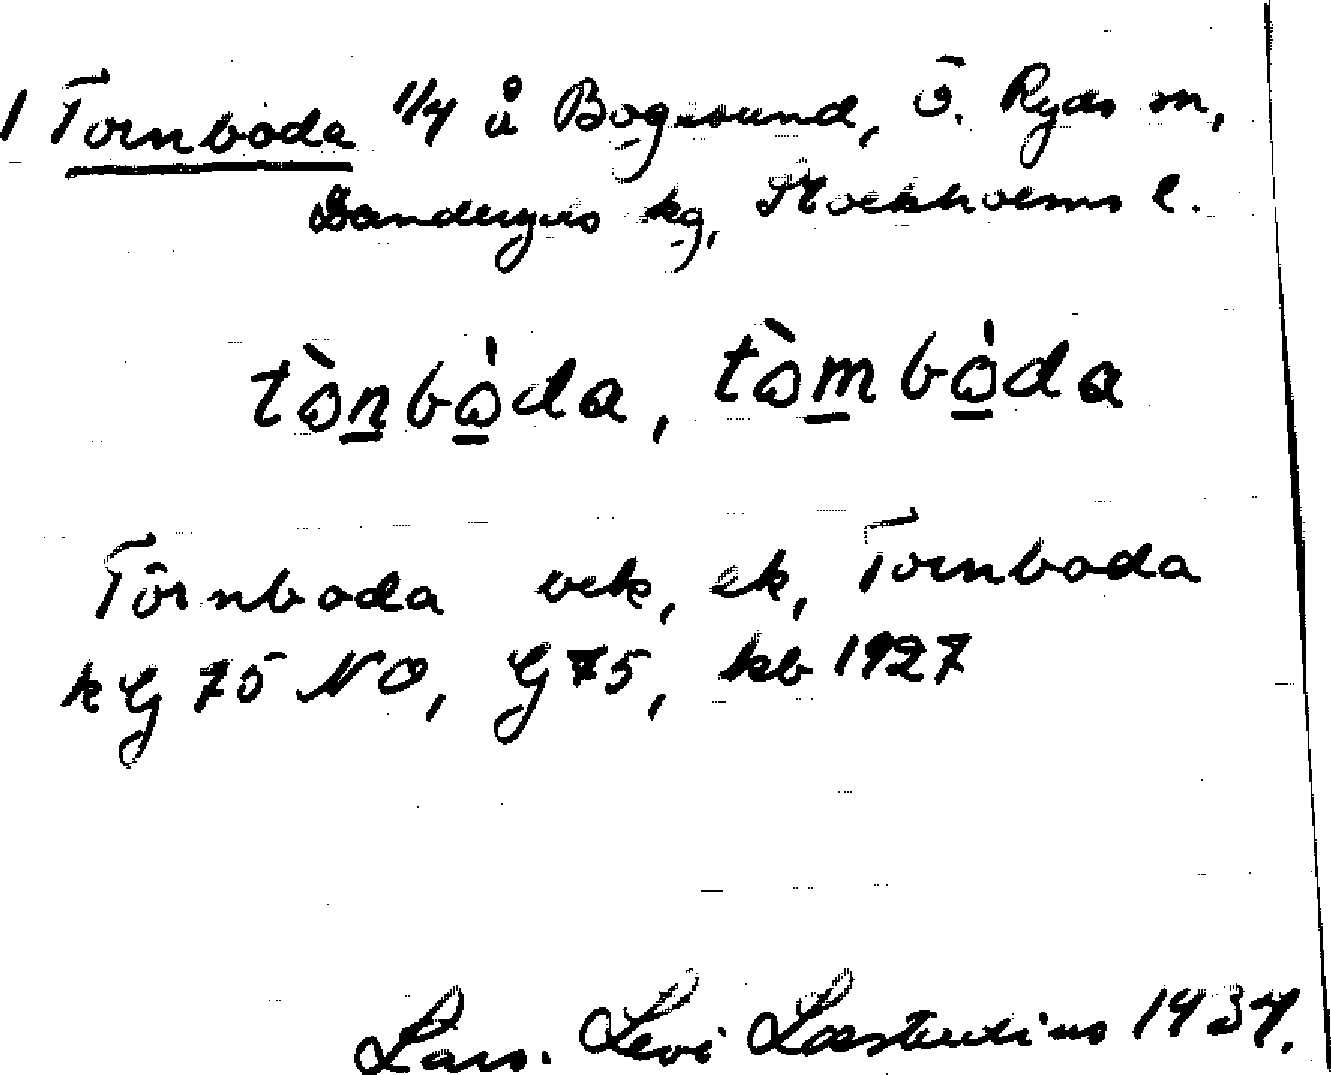 1 Tornboda 1/4 å Bogesund, Ö. Ryds sn,
Danderyds kg, Stockholms l.
tò̀nbó̀da, tòmbó̀da
Törnboda vek, ek, Tornboda
kG 75 NO, G 75, kb 1927
Lars. Levi Læstadius 1934.